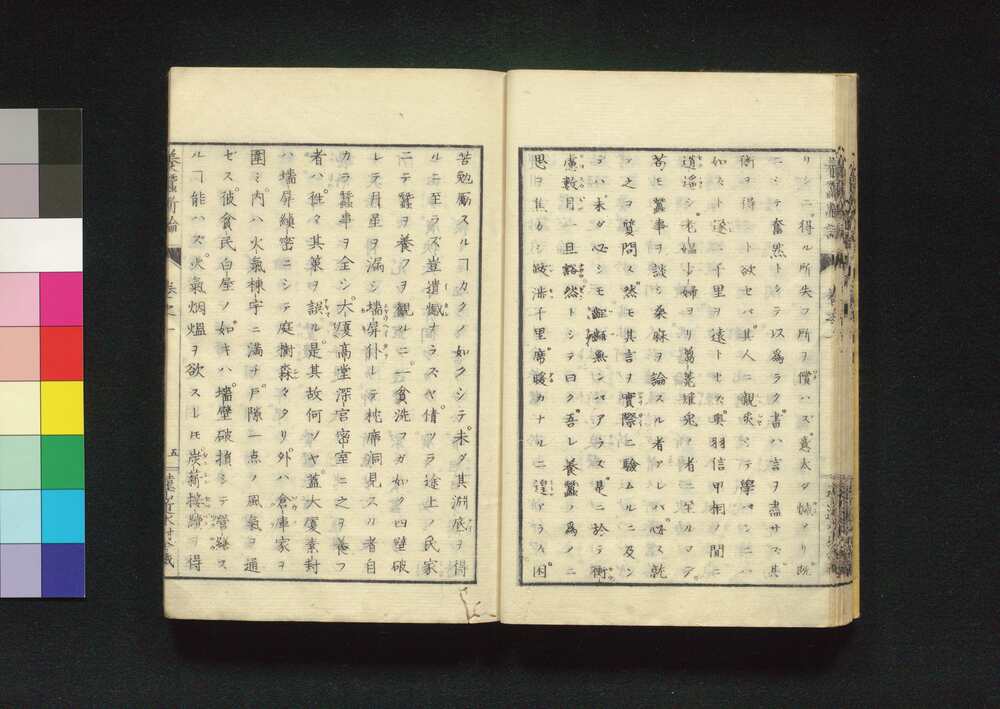 リシニ得ル所失フ所ヲ償ハズ意太ダ慊ラリ既
ニシテ奮然トシテ以爲ラク書ハ言ヲ盡サズ其
術ヲ得ント欲セバ其人ニ親炙シテ學バンニハ
如ズト遂ニ千里ヲ遠トセス奥羽信甲相ノ間ニ
逍遥シ老媼少婦ヨリ蒭蕘雉兎ノ者ニ至ルマデ
苟モ蠶事ヲ談シ桑麻ヲ論スル者アレバ必ス就
テ之ヲ質問ス然モ其言ヲ實際ニ驗ムルニ及ン
ラハ未ダ必シモ齟齬無ンバアラズ是ニ於テ衡
慮數月一旦豁然トシテ曰ク吾レ養蠶ノ爲メニ
思ヲ焦カシ跋渉千里席暖カナルニ遑アラス困
苦勉勵スルヿカクノ如クシテ未ダ其淵底ヲ得
ルニ至ラズ豈遺憾ナラズヤ情ラ途上ノ民家
ニテ蠶ヲ養フヲ觀ルニ一貧洗フガ如ク四壁破
レテ月星ヲ漏シ墻屏仆レテ枕席洞見スル者自
カラ蠶事ヲ全シ大廈高堂深宮密室ニ之ヲ養フ
者ハ徃々其業ヲ誤ル是其故何ソヤ蓋大廈素封
ハ墻屏縝密ニシテ庭樹森々タリ外ハ倉庫家ヲ
圍ミ内ハ火氣棟宇ニ満チ戸隙一点ノ風氣ヲ通
ゼス彼貧民白屋ノ如キハ墻壁破損シテ營繕ス
ルヿ能ハズ火氣烟熅ヲ欲スレ𪜈炭薪接續ヲ得
養蠶新論
卷之一
五